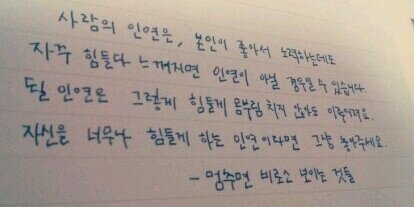 사람의 인연은, 본인이 좋아서 노력하는데도
자꾸 힘들다 느껴지면 인연이 아닐 경우일 수 있습니다.
될 인연은 그렇게 힘들게 몸부림 치지 않아도 이루어져요.
자신을 너무나 힘들게 하는 인연이라면 그냥 놓아주세요.
- 멈추면 비로소 보이는 것들